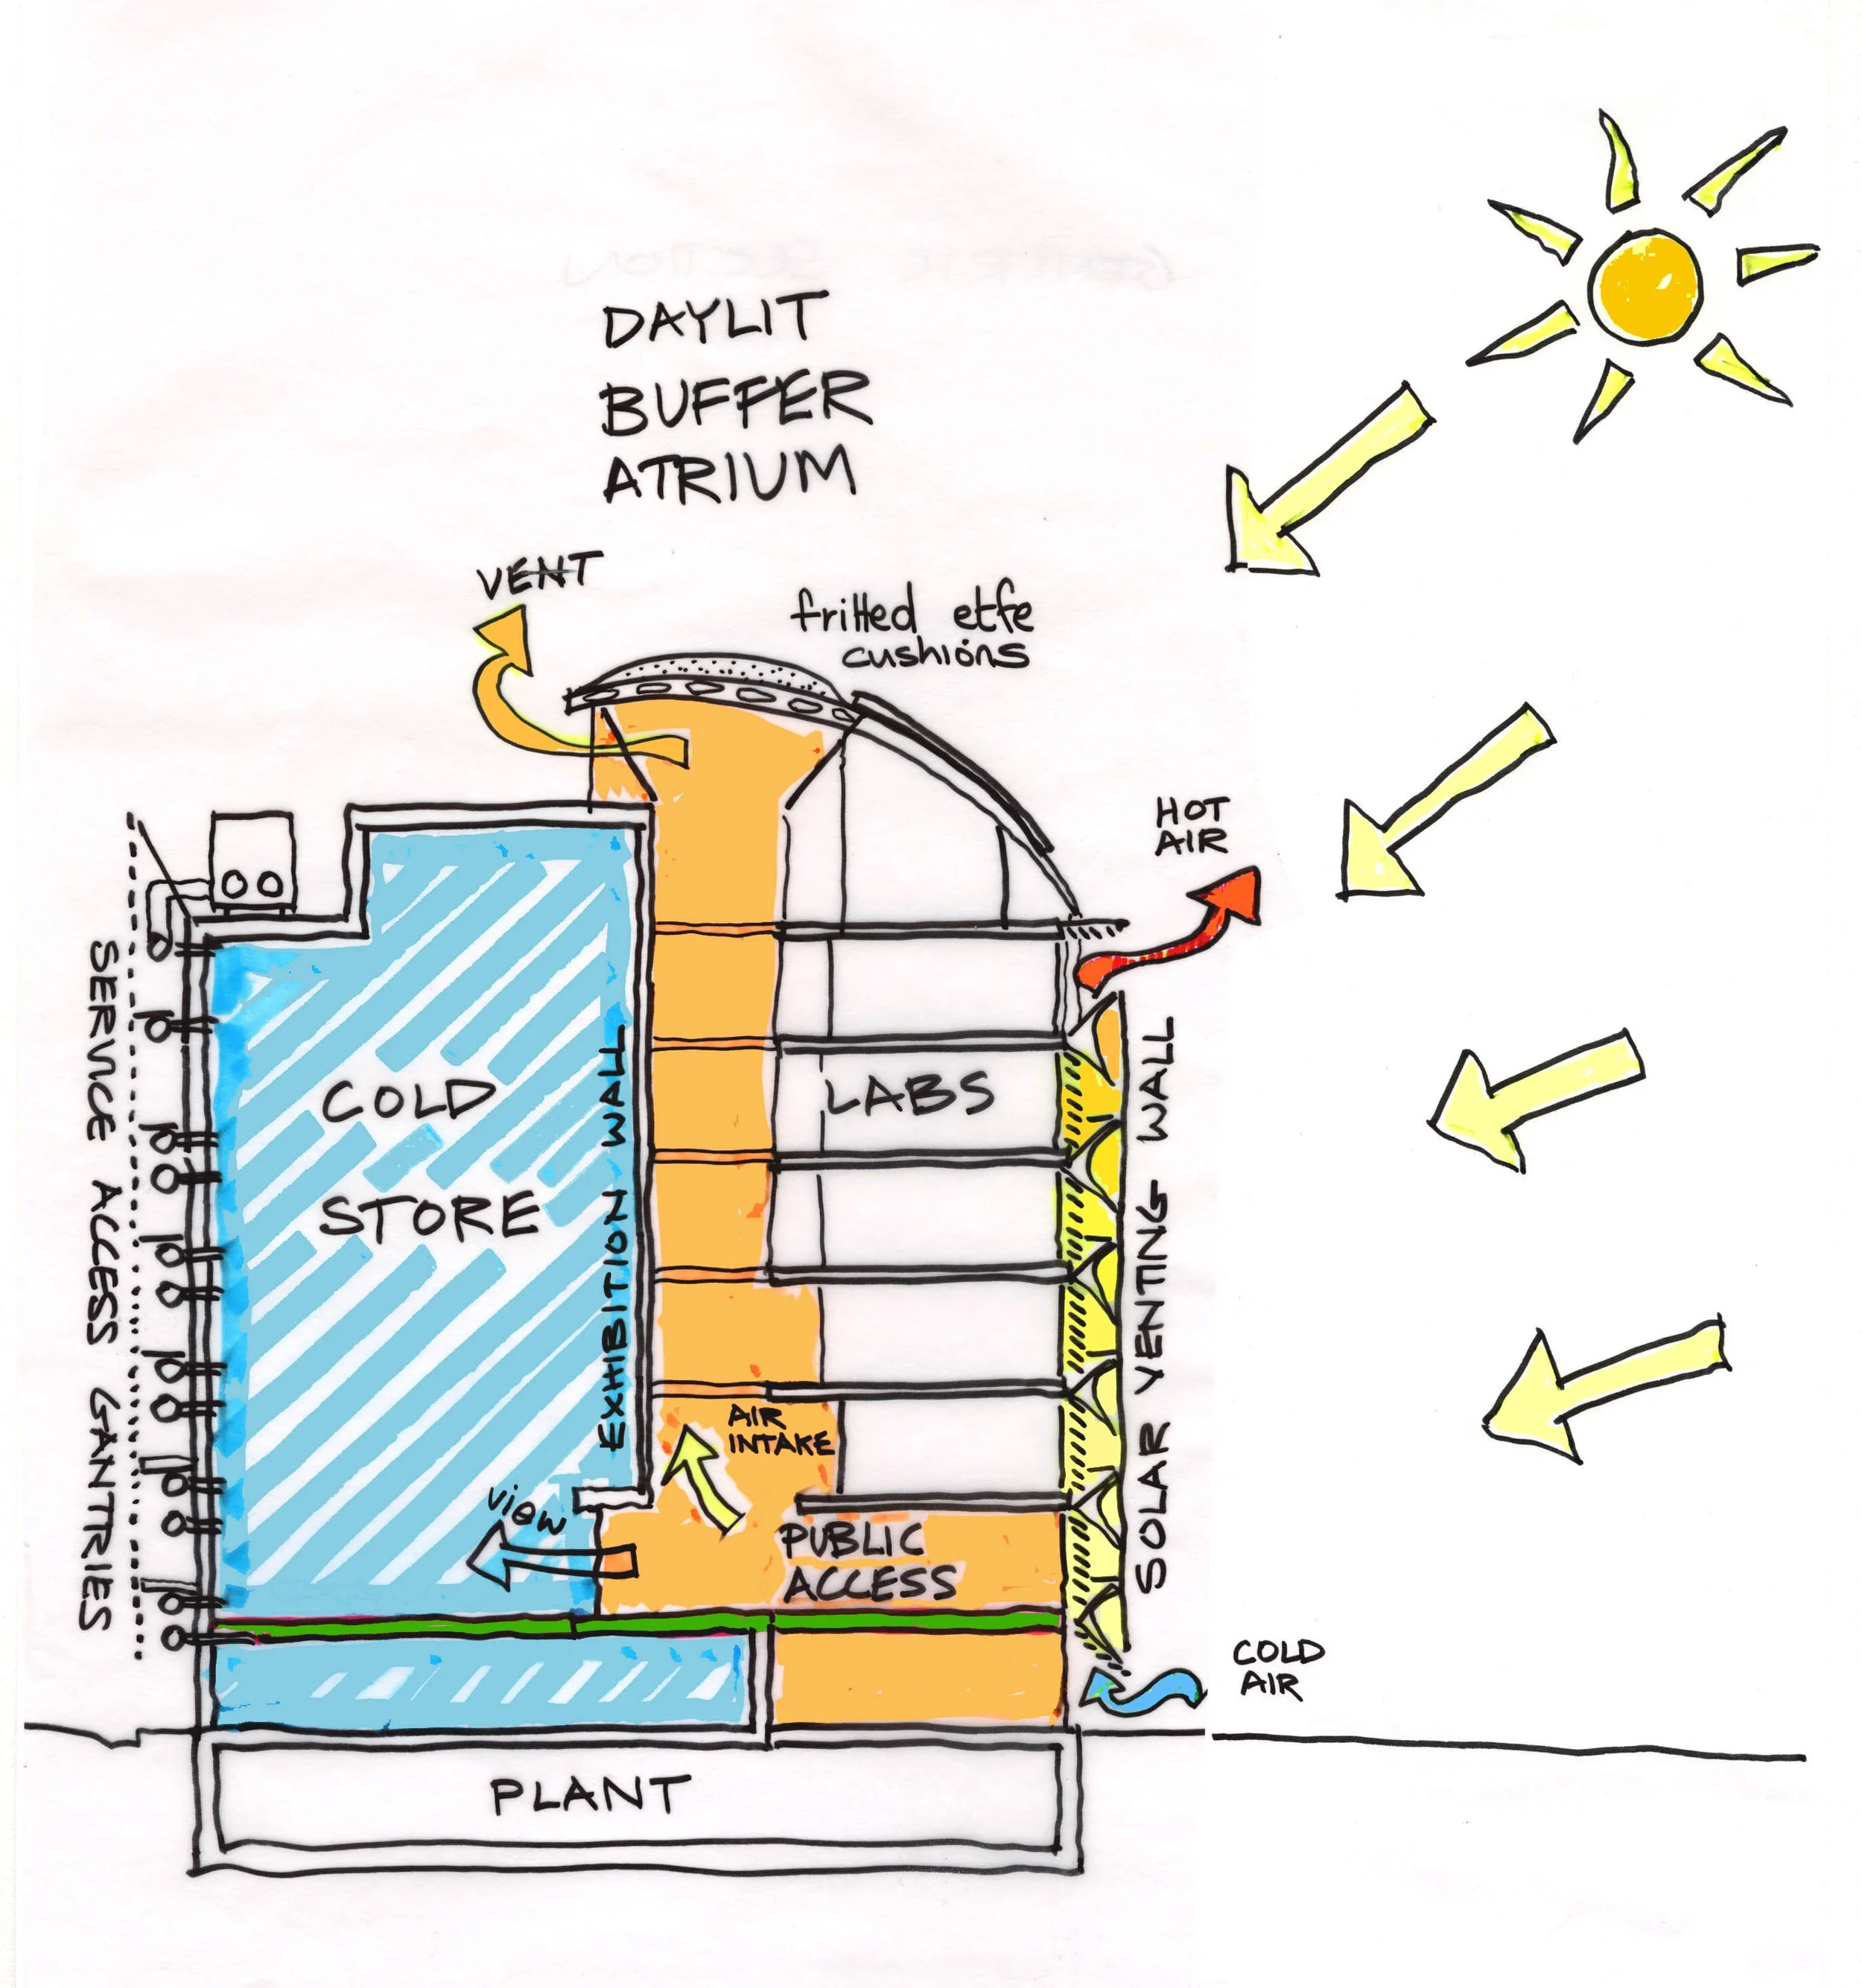 DAYLIT
BUFFER
ATRIUM
VENT
fritted etfe
cushions
HOT
AIR
SERVICE ACCESS GANTRIES
COLD
STORE
EXHIBITION WALL
LABS
SOLAR VENTING WALL
AIR
INTAKE
view
PUBLIC
ACCESS
COLD
AIR
PLANT